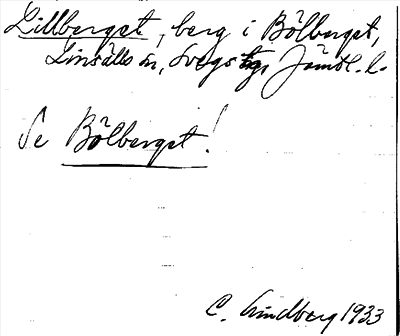 Lillberget, berg i Bölberget,
Linsälls sn, Svegs tgs, Jämtl. l.
Se Bölberget!
C. Lindberg 1933